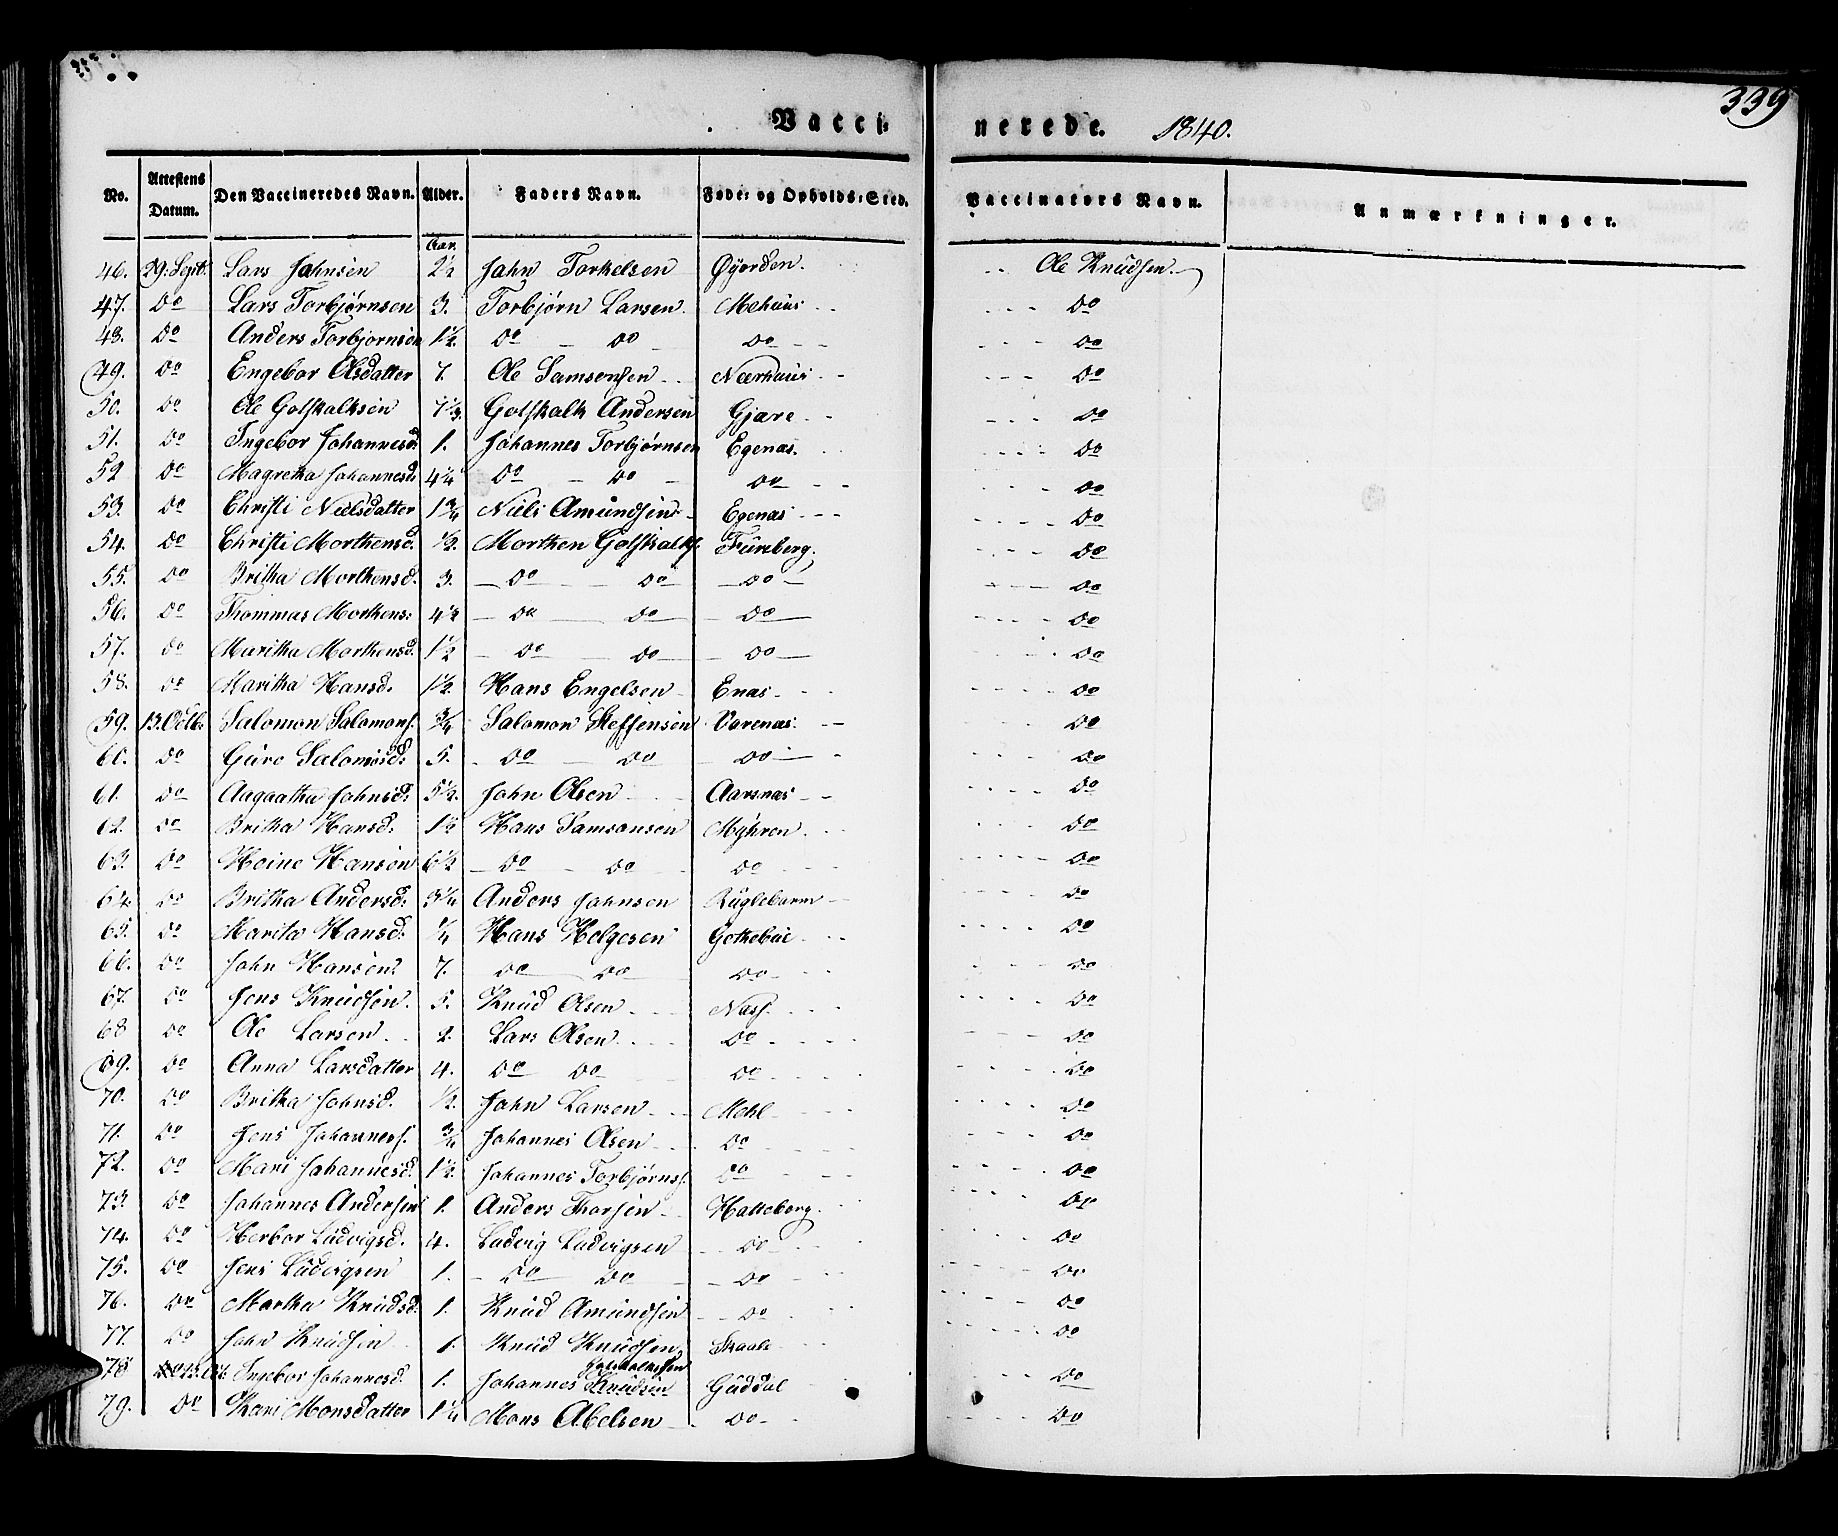 339
Vacci- nerede. 1840.
No. Attestens Datum. Den Vaccineredes Navn. Alder. Faders Navn. Føde- og Opholds-Sted. Vaccinators Navn. Anmærkninger.
Aar.
46. 29. Sept. Lars Jahnsen 2½ Jahn Torkelsen Øyerden. Ole Knudsen.
47. do Lars Torbjørnsen 3. Torbjørn Larsen Mehuus do
48. do Anders Torbjornsen 1½. do do do do
49. do Engebor Olsdatter 7. Ole Samsonsen Nærhuus do
50. do Ole Golskalksen 7⅓. Golskalk Andersen Gjære do
51. do Ingebor Johannesd. 1. Johannes Torbjørnsen Egenæs. do
52 do Magretha Johannesd. 4¼ do do do do
53. do Christi Nielsdatter 1¾ Niels Amundsen Egenæs do
54. do Christi Morthensd. ½. Morthen Golskalks. Fureberg. do
55. do Britha Morthensd. 3. do do do do
56. do Thommas Morthens: 4½ do do do do
57. do Maritha Morthensd. 1½ do do do do
58. do Maritha Hansd. 1½. Hans Engelsen Enæs do
59. 13. Octb. Salomon Salomons. ¾ Salomon Steffensen Varenæs. do
60. do Guro Salomosd. 5. do do do do
61. do Aagaatha Johnsd. 5½. John Olsen Aarsnæs do
62. do Britha Hansd. 1½ Hans Samsonsen Myhren. do
63. do Heine Hansen 6½ do do do do
64. do Britha Andersd. 3¼ Anders Jahnsen Ruglebarm do
65. do Marita Hansd. ¼ Hans Helgesen Gethebøe do
66. do John Hansen. 7. do do do do
67. do Jens Knudsen. 5. Knud Olsen Næss. do
68 do Ole Larsen 2. Lars Olsen do do
69. do Anna Larsdatter 4. do do do do
70. do Britha Johnsd. ½. John Larsen Mehl do
71. do Jens Johanness. ¾ Johannes Olsen do do
72. do Mari Johannesd. 1½. Johannes Torbjørns. do do
73. do Johannes Andersen 1. Anders Thorsen Hatteberg. do
74 do Herbor Ludvigsd. 4. Ludvig Ludvigsen do do
75. do Jens Ludvigsen 1. do do do do
76. do Martha Knudsd. 1. Knud Amundsen do do
77. do John Knudsen 1. Knud Knudsen Skaale do
78 Ingebor Johannesd. 1. Johannes Knudsen Guddal do
79. do Kari Monsdatter 1¼ Mons Abelsen do do